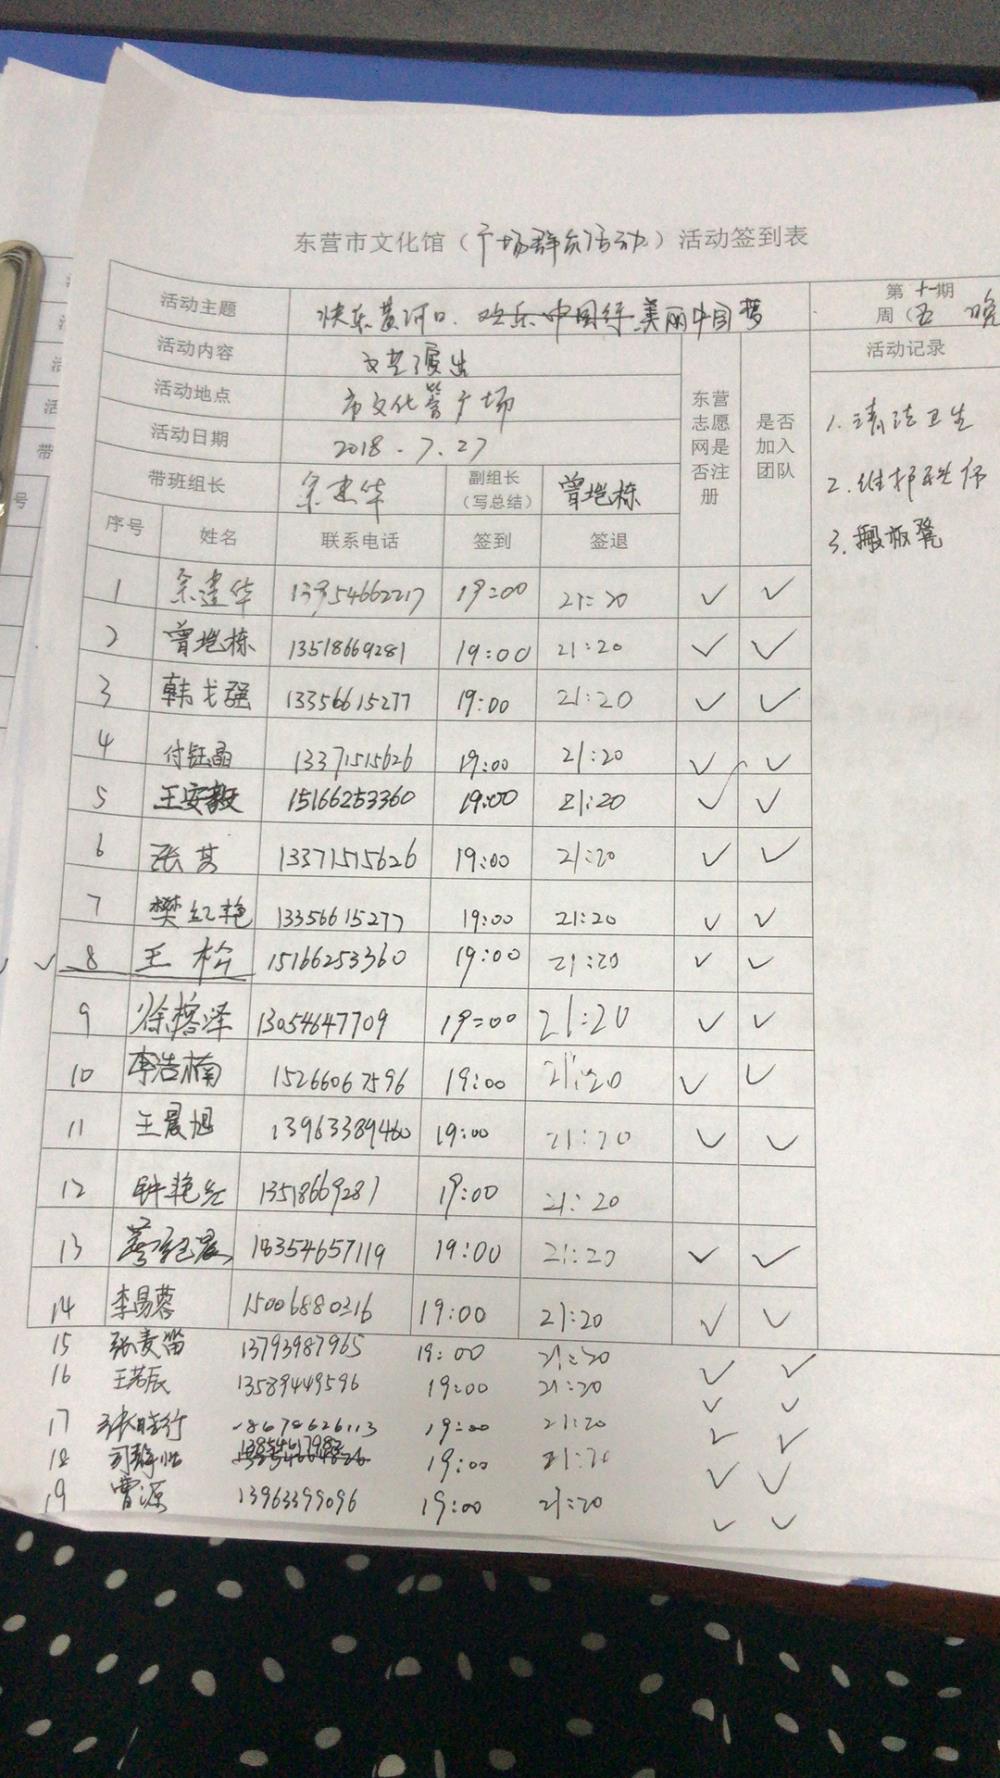 东营市文化馆（广场群众活动）活动签到表
活动主题 快乐黄河口、欢乐中国行 美丽中国梦 第十一期
周（五 晚
活动内容 文艺演出 东营志愿网是否注册 是否加入团队 活动记录
活动地点 市文化馆广场 1.清洁卫生
活动日期 2018.7.27 2.维护秩序
带班组长 余建华 副组长（写总结） 曾垲栋 3.搬板凳
序号 姓名 联系电话 签到 签退
1 余建华 13954662217 19:00 21:20 ✓ ✓
2 曾垲栋 13518669281 19:00 21:20 ✓ ✓
3 韩戈强 13356615277 19:00 21:20 ✓ ✓
4 付钰晶 13371515626 19:00 21:20 ✓ ✓
5 王安毅 15166253360 19:00 21:20 ✓ ✓
6 张 13371515626 19:00 21:20 ✓ ✓
7 樊红艳 13356615277 19:00 21:20 ✓ ✓
✓ 8 王 15166253360 19:00 21:20 ✓ ✓
9 徐榕泽 13054647709 19:00 21:20 ✓ ✓
10 李浩楠 15266067596 19:00 21:20 ✓ ✓
11 王晨旭 13963389460 19:00 21:20 ✓ ✓
12 钟艳红 13518669281 19:00 21:20
13 18354657119 19:00 21:20 ✓ ✓
14 李易蓉 15006880316 19:00 21:20 ✓ ✓
15 张麦笛 13793987965 19:00 21:20 ✓ ✓
16 王若辰 13589449596 19:00 21:20 ✓ ✓
17 19:00 21:20 ✓ ✓
18 19:00 21:20 ✓ ✓
19 曹源 13963399096 19:00 21:20 ✓ ✓